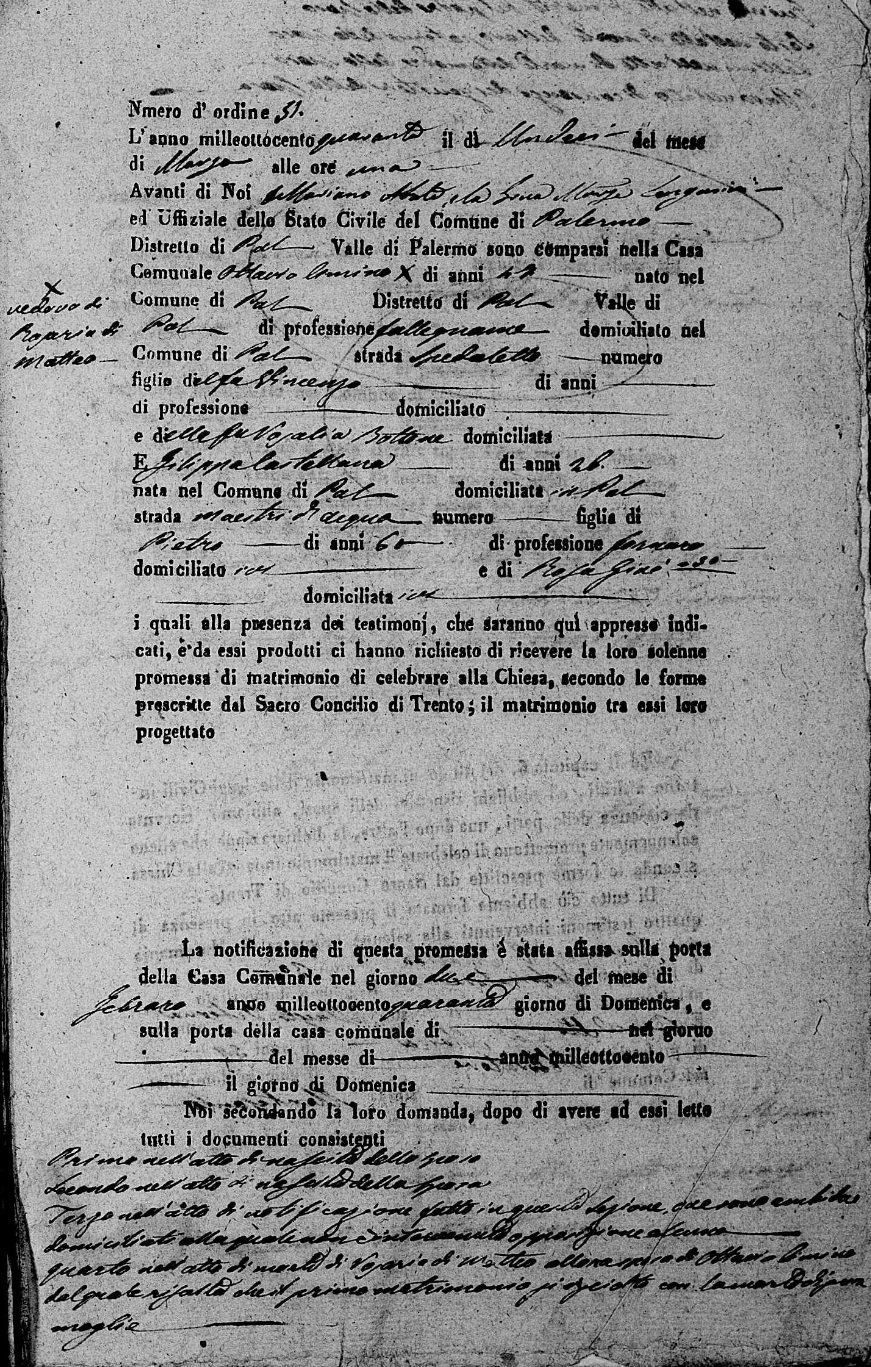 Nmero d' ordine 51.
L'anno milleottocento quaranta il dì Undeci del mese
di Marzo alle ore una
Avanti di Noi Mariano
ed Uffiziale dello Stato Civile del Comune di Palermo
Distretto di Pal Valle di Palermo sono comparsi nella Casa
Comunale Ottavio Cimino X di anni 42 nato nel
Comune di Pal Distretto di Pal Valle di
Pal di professione falegname domiciliato nel
Comune di Pal strada Spedaletto numero
figlio del fu Vincenzo di anni
di professione domiciliato
e della fu Rosalia Bottone domiciliata
E Filippa Castellana di anni 26.
nata nel Comune di Pal domiciliata ivi Pal
strada maestri di acqua numero figlia di
Pietro di anni 60 di professione fornaro
domiciliato ivi e di Rosa
domiciliata ivi
X
vedovo di
Rosaria di
Matteo
i quali alla presenza dei testimonj, che saranno quì appresso indi-
cati, e da essi prodotti ci hanno richiesto di ricevere la loro solenne
promessa di matrimonio di celebrare alla Chiesa, secondo le forme
prescritte dal Sacro Concilio di Trento; il matrimonio tra essi loro
progettato
La notificazione di questa promessa è stata affissa sulla porta
della Casa Comunale nel giorno due del mese di
Febraro anno milleottocento quaranta giorno di Domenica, e
sulla porta della casa comunale di nel giorno
del messe di anno milleottocento
il giorno di Domenica
Noi secondando la loro domanda, dopo di avere ad essi letto
tutti i documenti consistenti
Primo nell'atto di nascita dello sposo
Secondo nell'atto di nascita della sposa
Terzo nell'atto di notificazione fatto in questa sezione, ove sono ambidue
domiciliati alla quale non è intervenuta opposizione alcuna
quarto nell'atto di morte di Rosaria di Matteo allora sposa di Ottavio Cimino
dal quale risulta che il primo matrimonio si sciolse con la morte di sua
moglie